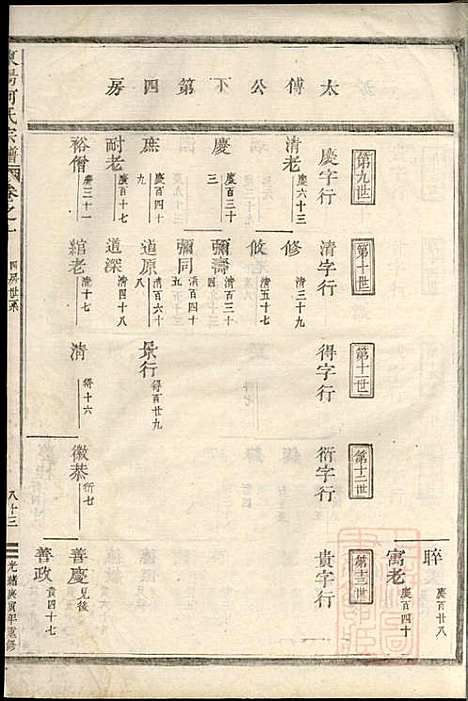 太傅公下第四房
睟 慶百廿八
寓老 慶百四十
第九世
第十世
第十一世
第十二世
第十三世
慶字行
清字行
得字行
衍字行
貴字行
清老 慶六十三
修 清三十九
攸 清五十七
慶 慶百三十三
彌壽 清百三十四
彌同 清百四十五
庶 慶百四十九
道原 清百六十
景行 得百廿九
耐老 慶百十七
道深 清四十八
裕僧 慶三十一
綰老 清十七
清 得十六
徽恭 衍七
善慶 見後
善政 貴四十七
東陽何氏宗譜 卷之一
四房世系
八十三
光緒庚寅年重修